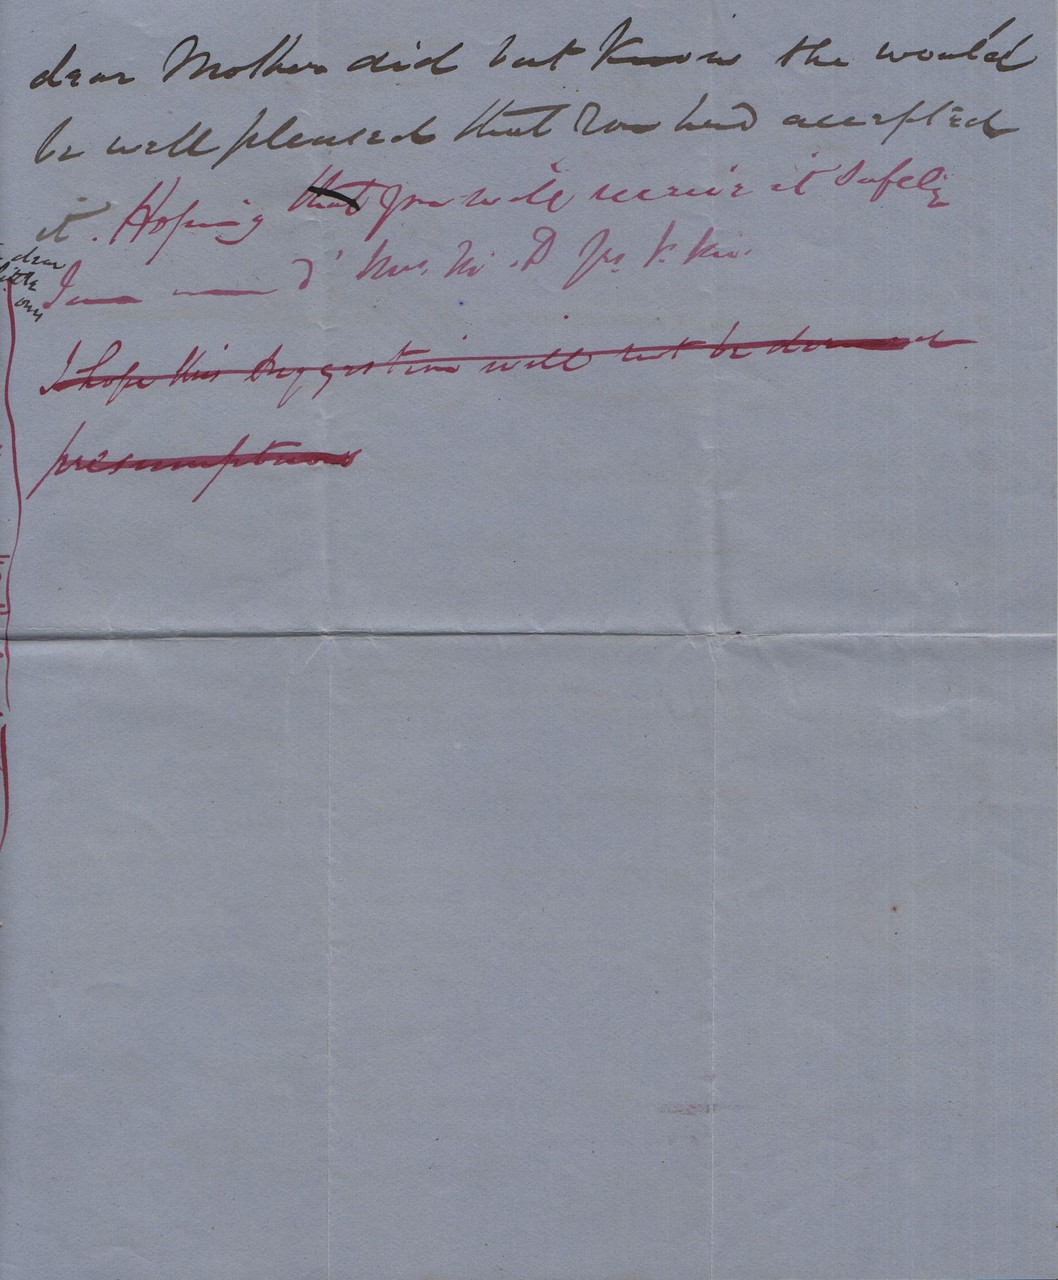 dear Mother did but know she would
be well pleased that you had accepted
it. Hoping that you will receive it safely
I am
I hope this suggestion will not be deemed
presumptuous
dear
little
one